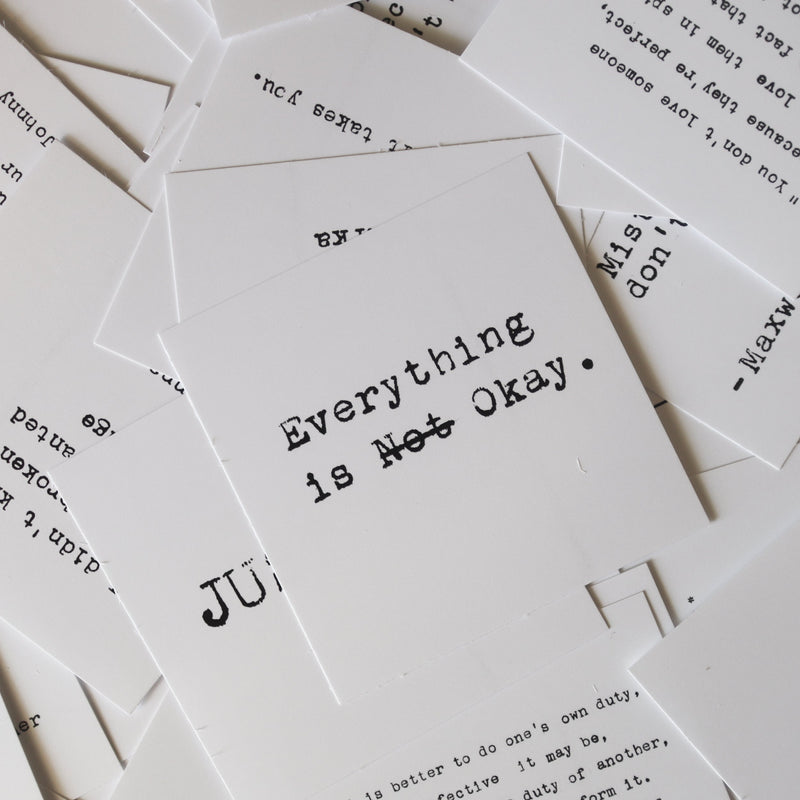 Everything
is ~~Not~~ Okay.
"You don't love someone
because they're perfect,
love them in
fact that
t takes you.
Johnny
ur
Mist
don't
- Maxw
anted
broken
didn't k
er
is better to do one's own duty,
fective it may be,
duty of another,
form it.